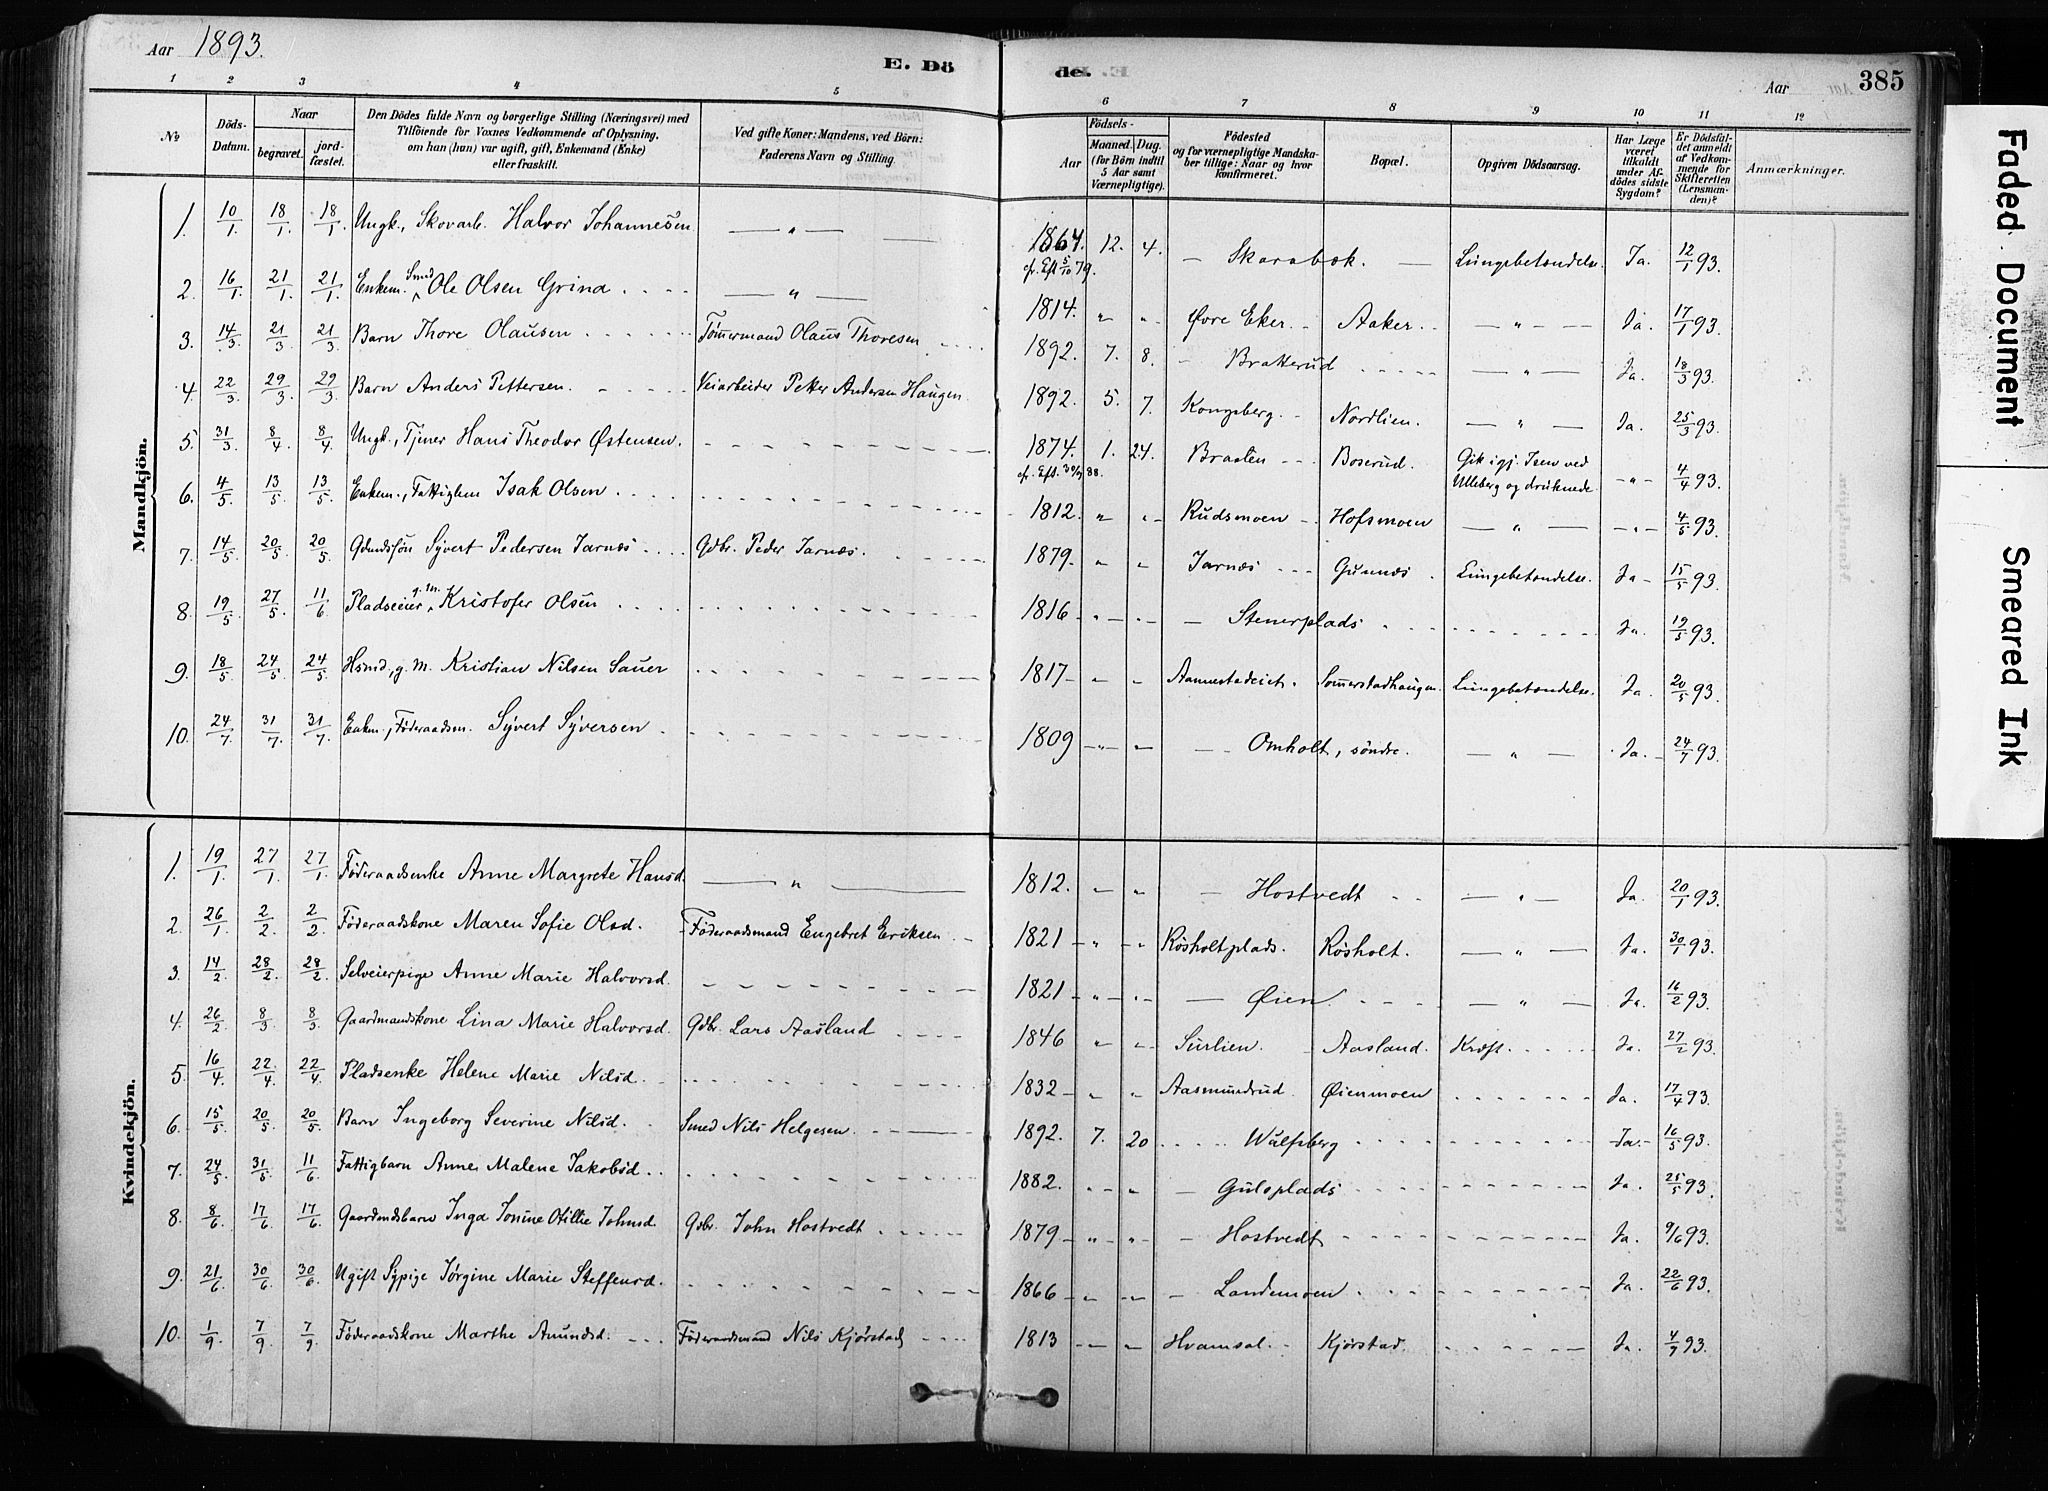 Aar 1893.
E. Dö
de.
Aar
385
1 2 3 4 5
6 7 8 9 10 11 12
No
Döds-Datum.
Naar
begravet.
jord-fæstet.
Den Dödes fulde Navn og borgerlige Stilling (Næringsvei) med
Tilföiende for Voxnes Vedkommende af Oplysning,
om han (hun) var ugift, gift, Enkemand (Enke)
eller fraskilt.
Ved gifte Koner: Mandens, ved Börn:
Faderens Navn og Stilling.
Födsels-
Aar
Maaned. Dag.
(for Börn indtil
5 Aar samt
Værnepligtige).
Födested
og for værnepligtige Mandska-
ber tillige: Naar og hvor
konfirmeret.
Bopæl.
Opgiven Dödsaarsag.
Har Læge
været
tilkaldt
under Af-
dödes sidste
Sygdom?
Er Dödsfal-
det anmeldt
af Vedkom-
mende for
Skifteretten
(Lensman-
den)?
Anmærkninger.
Mandkjön.
1. 10/1. 18/1. 18/1. Ungk., Skovarb. Halvor Johannesen — " — 1864. 12. 4. — Skarabæk. — Lungebetændelse. Ja. 12/1 93.
cf. Eft 5/10 79.
2. 16/1. 21/1. 21/1. Enkem. Smed Ole Olsen Grind — " — 1814. " " Øvre Eker. Aaker. — " — Ja. 17/1 93.
3. 14/3. 21/3. 21/3. Barn Thore Olausen Tömmermand Olaus Thoresen 1892. 7. 8. — Bratterud — " — Ja. 18/3 93.
4. 22/3. 29/3. 29/3. Barn Anders Pettersen. Veiarbeider Petter Andersen Haugen. 1892. 5. 7. Kongsberg. Nordlien. — " — Ja. 25/3 93.
5. 31/3. 8/4. 8/4. Ungk., Tjener Hans Theodor Østensen. 1874. 1. 24. Braaten Boserud. Gik igj. Isen ved
cf. Eft. 88. Ulleberg og druknede. — " — 4/4 93.
6. 4/5. 13/5. 13/5. Enkem., Fattiglem Isak Olsen 1812. " " Rudsmoen Hofsmoen — " — — " — 4/5 93.
7. 14/5. 20/5. 20/5. Gdmdssön Syvert Pedersen Jarnæs Gdbr. Peder Jarnæs. 1879. " " Jarnæs Gunnæs Lungebetændelse. Ja 15/5 93.
8. 19/5. 27/5. 11/6. Pladseier g. m. Kristofer Olsen 1816 " " — Stenerplads Ja. 19/5 93.
9. 18/5. 24/5. 24/5. Hsmd., g. m. Kristian Nilsen Sauer 1817 " " Aannestadeiet. Sommerstadhaugen. Lungebetændelse. Ja. 20/5 93.
10. 24/7. 31/7. 31/7. Enkem., Föderaadsm. Syvert Syversen 1809 " " — Omholt, söndre. — " — Ja. 24/7 93.
Kvindekjön.
1. 19/1. 27/1. 27/1. Föderaadsenke Anne Margrete Hansd. — " — 1812. " " — Hostvedt — " — Ja. 20/1 93.
2. 26/1. 2/2. 2/2. Föderaadskone Maren Sofie Olsd. Föderaadsmand Engebret Eriksen 1821 " " Røsholtplads. Røsholt. — " — Ja. 30/1 93.
3. 14/2. 28/2. 28/2. Selveierpige Anne Marie Halvorsd. 1821 " " — Øien — " — Ja. 16/2 93.
4. 26/2. 8/3. 8/3. Gaardmandskone Lina Marie Halvorsd. Gdbr. Lars Aasland 1846 " " Surlien. Aasland. Kræft. Ja. 27/2 93.
5. 16/4. 22/4. 22/4. Pladsenke Helene Marie Nilsd. 1832 " " Aasmundrud Øienmoen Ja. 17/4 93.
6. 15/5. 20/5. 20/5. Barn Ingeborg Severine Nilsd. Smed Nils Helgesen 1892. 7. 20 Wulfsberg Ja. 16/5 93.
7. 24/5. 31/5. 11/6. Fattigbarn Anne Malene Jakobsd. 1882. " " — Gulsplads Ja. 25/5 93.
8. 8/6. 17/6. 17/6. Gaardmdsbarn Inga Jonine Otillie Johnsd. Gdbr. John Hostvedt 1879 " " — Hostvedt Ja. 9/6 93.
9. 21/6. 30/6. 30/6. Ugift Sypige Jørgine Marie Steffensd. 1866 " " — Landemoen Ja. 22/6 93.
10. 1/9. 7/9. 7/9. Föderaadskone Marthe Amundsd. Föderaadsmand Nils Kjørstad 1813 " " Hvamsal. Kjørstad. Ja. 4/9 93.
Faded Document
Smeared Ink